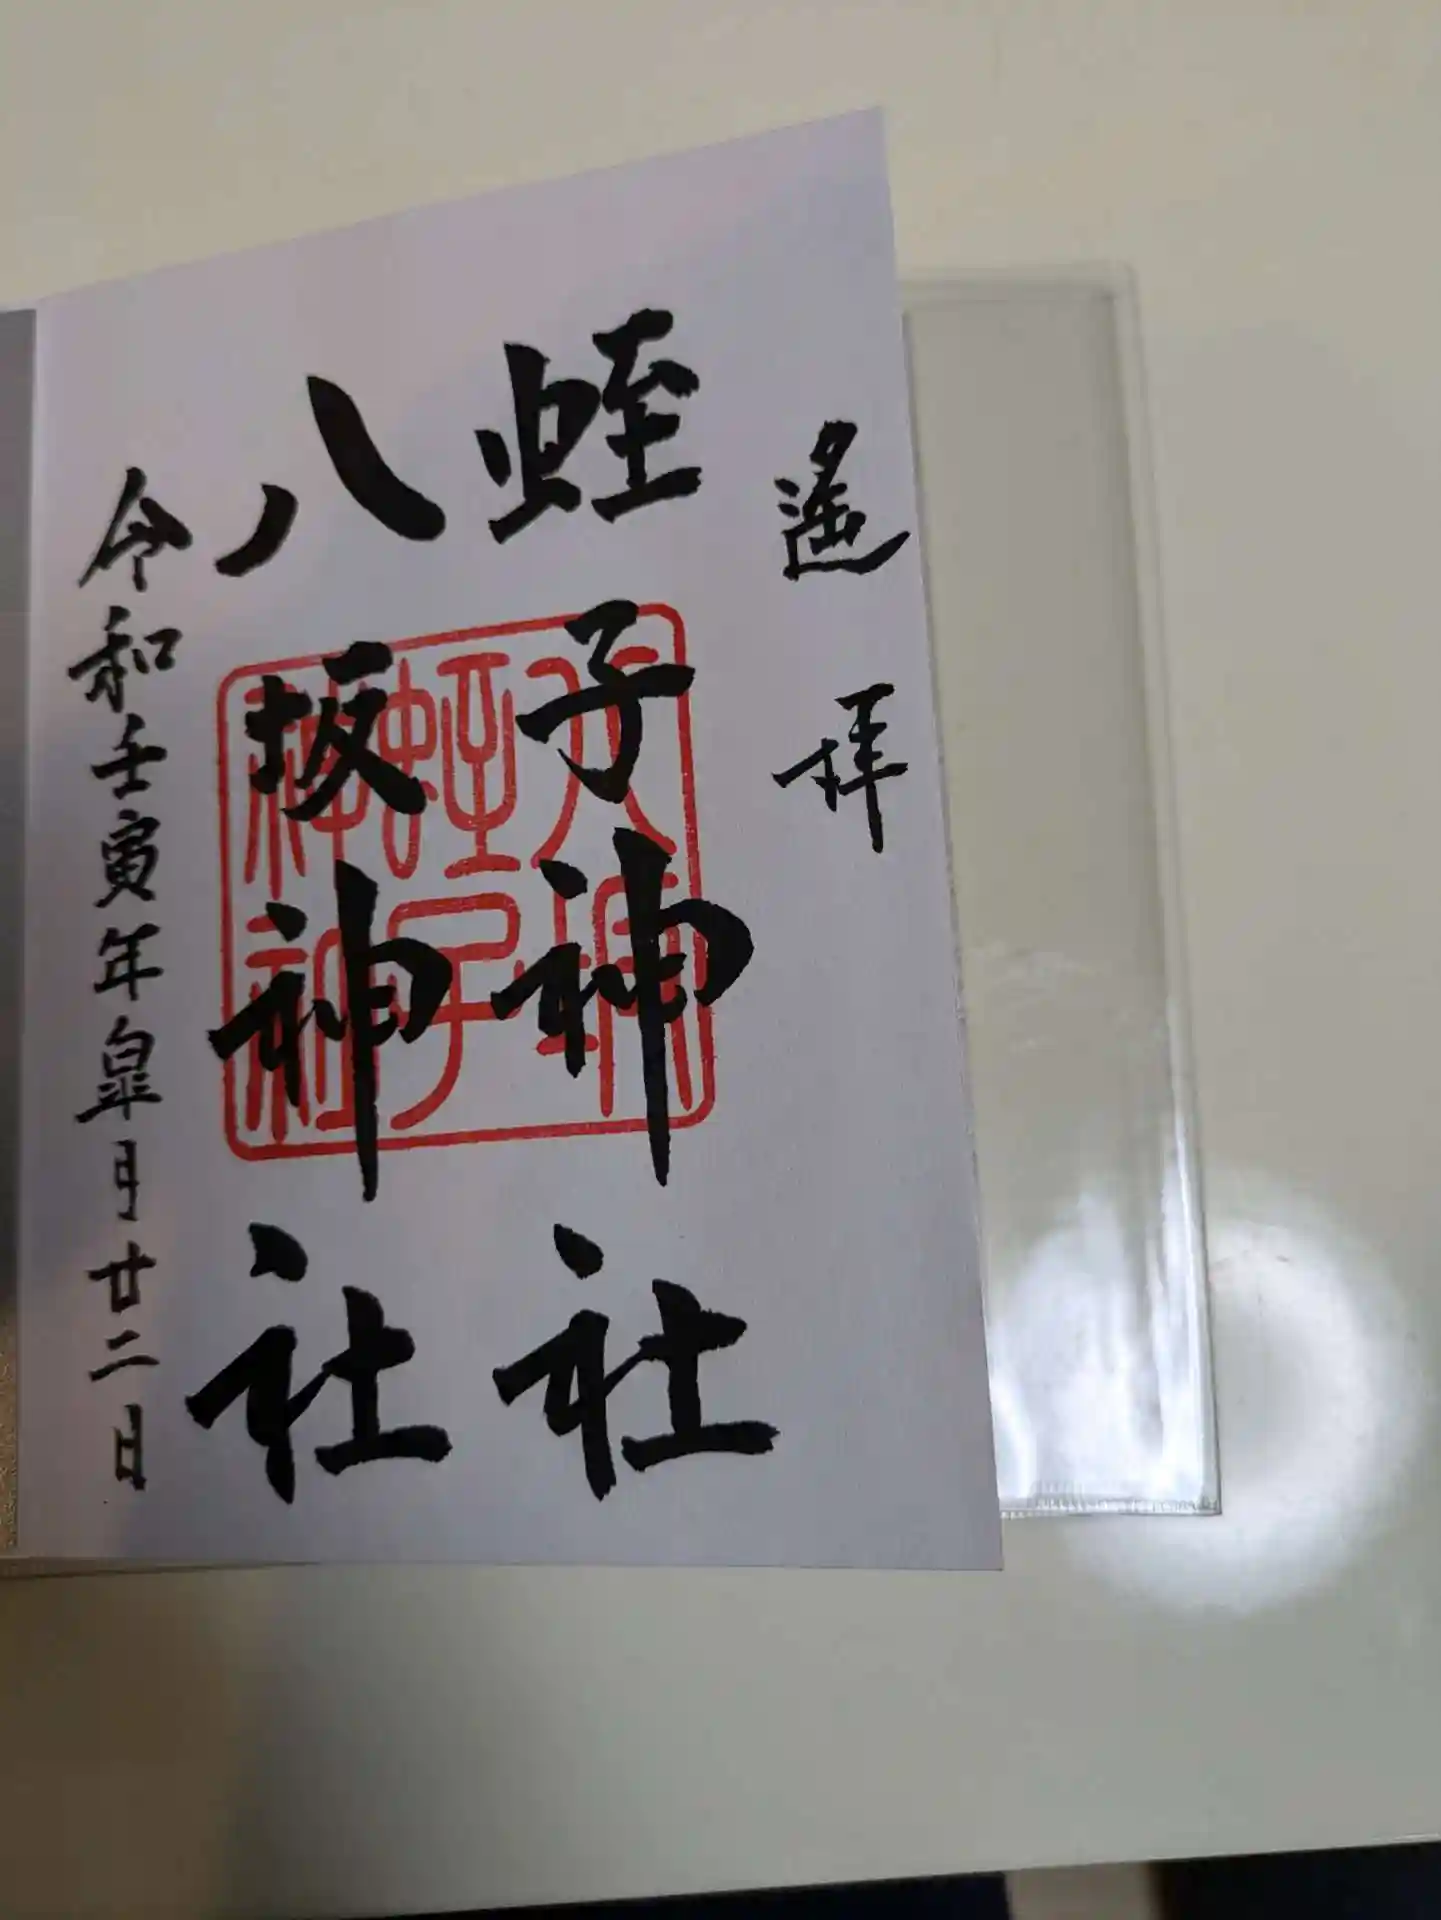 遙拝
蛭子神社
八坂神社
令和壬寅年皐月廿二日
八坂
蛭子
神社